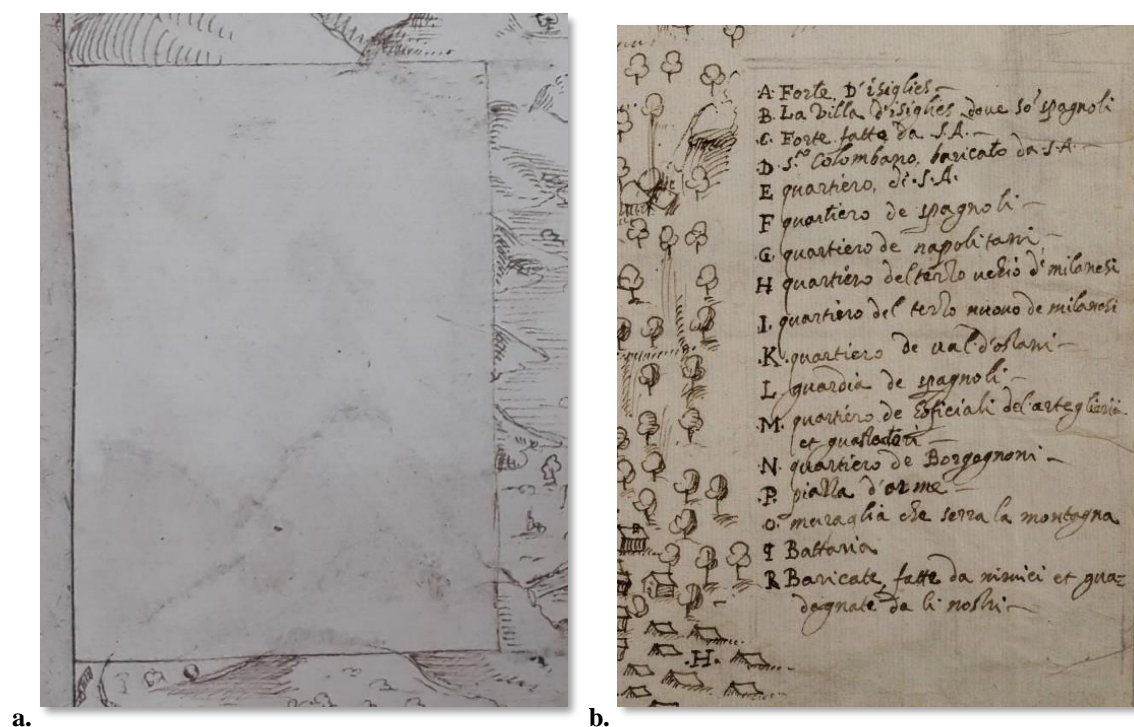 A Forte D'isiglies
B. La Villa d'isiglies doue so' spagnoli
C. Forte fatte da S.A.
D S.to Colombano, baricato da S.A.
E quartiero, di S.A.
F quartiero de spagnoli
G. quartiero de napolitani
H quartiero del terzo uechio d' milanesi
I. quartiero del terzo nuouo de milanesi
.K. quartiero de ual d'ostani
L guardia de spagnoli
.M. quartiero de Officiali del'artegliaria
et guastatori
.N. quartiero de Borgognoni
.P. piazza d'arme
O. muraglia che serra la montagna
Battaria
R Baricate, fatte da nimici et gua=
dagnate da li nostri
.H.
a.
b.